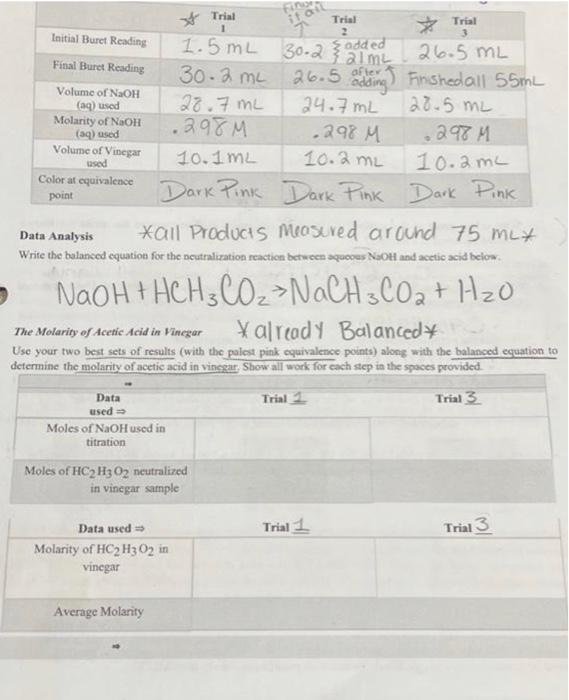 Finish it all
☆ Trial 1 Trial 2 ☆ Trial 3
Initial Buret Reading 1.5 mL 30.2 } added 21mL 26.5 mL
Final Buret Reading 30.2 mL 26.5 after adding Finished all 55mL
Volume of NaOH (aq) used 28.7 mL 24.7 mL 28.5 mL
Molarity of NaOH (aq) used .298 M .298 M .298 M
Volume of Vinegar used 10.1mL 10.2 mL 10.2 mL
Color at equivalence point Dark Pink Dark Pink Dark Pink
Data Analysis *all Products Measured around 75 mL*
Write the balanced equation for the neutralization reaction between aqueous NaOH and acetic acid below.
NaOH + HCH3CO2 → NaCH3CO2 + H2O
The Molarity of Acetic Acid in Vinegar *already Balanced*
Use your two best sets of results (with the palest pink equivalence points) along with the balanced equation to
determine the molarity of acetic acid in vinegar. Show all work for each step in the spaces provided.
Data used ⇒ Trial 1 Trial 3
Moles of NaOH used in titration
Moles of HC2H3O2 neutralized in vinegar sample
Data used ⇒ Trial 1 Trial 3
Molarity of HC2H3O2 in vinegar
Average Molarity